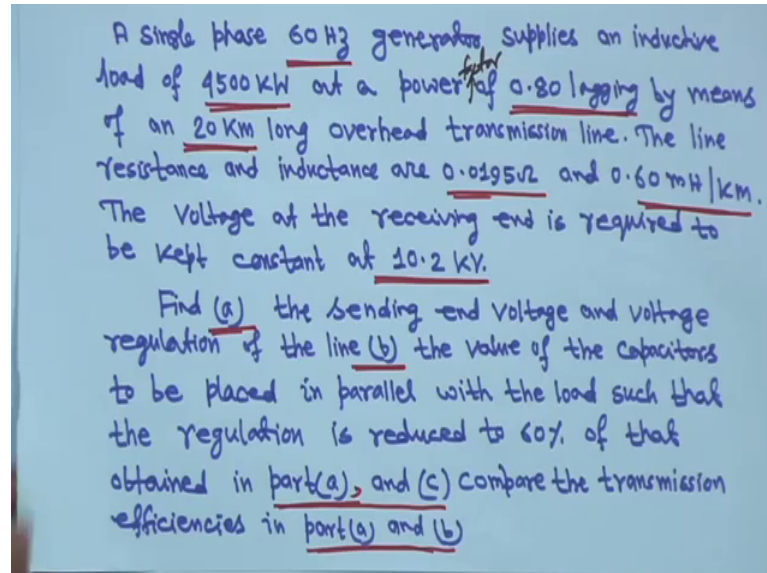 A Single phase 60 Hz generator supplies an inductive
load of 4500 KW at a power factor of 0.80 lagging by means
of an 20 Km long overhead transmission line. The line
resistance and inductance are 0.0195Ω and 0.60 mH/Km.
The Voltage at the receiving end is required to
be kept constant at 10.2 KV.
Find (a) the sending end voltage and voltage
regulation of the line (b) the value of the capacitors
to be placed in parallel with the load such that
the regulation is reduced to 60% of that
obtained in part(a), and (c) compare the transmission
efficiencies in part(a) and (b)